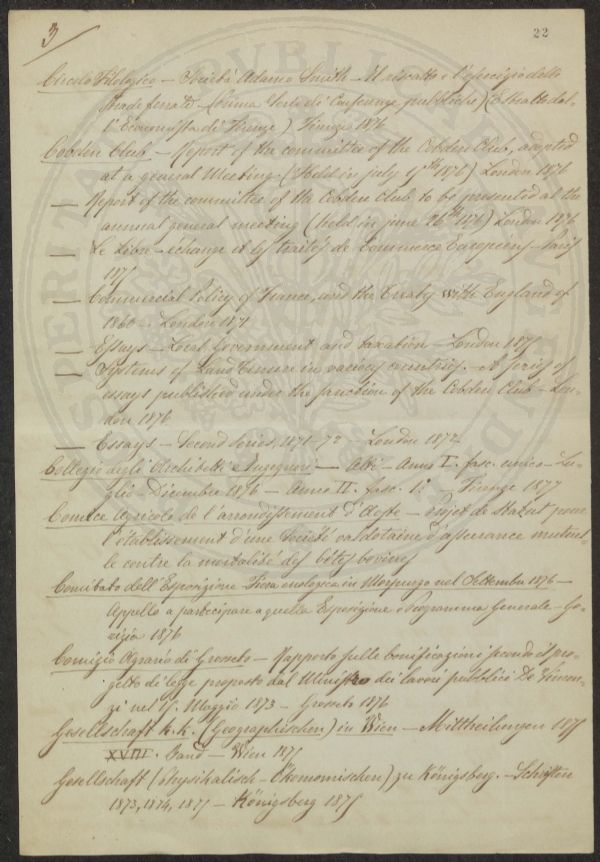 3/
22
Circolo Filologico — Società Adamo Smith — Il riscatto e l'esercizio delle
strade ferrate — (Prima Serie di Conferenze pubbliche) (Estratto dal-
l'Economista di Firenze) Firenze 1876
Cobden Club — Report of the committee of the Cobden Club, adopted
at a general Meeting (Held in july 15th 1876) London 1876
— Report of the committee of the Cobden Club to be presented at the
annual general meeting (held in june 26th 1876) London 1876
— Le Libre-echange et les traités de Commerce Européens — Paris
1875
— Commercial Policy of France, and the Treaty With England of
1860 — London 1871
— Essays — Local Government and taxation — London 1875
— Systems of Land Tenure in various countries. — A series of
essays published under the sanction of the Cobden Club — Lon-
don 1876
— Essays — Second series, 1871-72 — London 1872
Collegio degli Architetti e Ingegneri — Atti — Anno I. fasc. unico — Lu-
glio — Dicembre 1876 — Anno II. fasc. 1.° Firenze 1877
Comice Agricole de l'arrondissement d'Aoste — Projet de Statut pour
l'établissement d'une Société valdotaine d'assurance mutuel-
le contre la mortalité des bêtes bovines
Comitato dell'Esposizione Fiera enologica in Morpurgo nel Settembre 1876 —
Appello a partecipare a quella Esposizione e Programma Generale — Go-
rizia 1876
Comizio Agrario di Grosseto — Rapporto sulle bonificazioni secondo il pro-
getto di legge proposto dal Ministro dei lavori pubblici De Vincen-
zi nel 15 Maggio 1873 — Grosseto 1876
Gesellschaft k. k. (Geographischen) in Wien — Mittheilungen 1875
XVIII. Band — Wien 1875
Gesellschaft (Physikalisch-Ökonomischen) zu Königsberg. — Schriften
1873, 1874, 1875 — Königsberg 1875